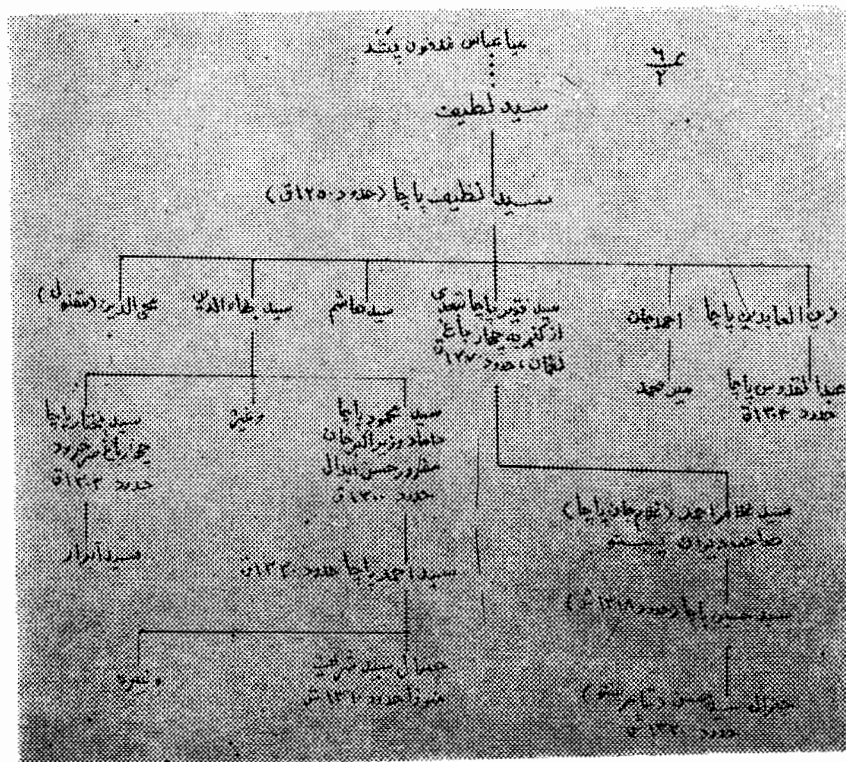 میا عباس مدفون پکتند
۶/۲
سید لطیف
سید لطیف پاچا (حدود ۱۲۵۰ق)
زین العابدین پاچا
احمدجان
سید قنبر پاچا
از کنر به چهار باغ
لغمان، حدود ۱۲۷۰ق
سید هاشم
سید بهاءالدین
محی الدین (مقتول)
عبدالقدوس پاچا
حدود ۱۳۰۴ق
میر صمد
سید محمود پاچا
داماد وزیر اکبرخان
مفرور حسن ابدال
حدود ۱۳۰۰ق
وغیره
سید مختار پاچا
چهارباغ سرخرود
حدود ۱۳۰۳ق
سید غلام احمد (غلام جان پاچا)
صاحب دیوان پښتو
سید احمد پاچا حدود ۱۳۳۰ق
سید ابرار
سید حسین پاچا (حدود ۱۳۱۸ش)
سید شریف
حدود ۱۳۱۰ش
وغیره
جنرال سید حسن
حدود ۱۳۲۰ش